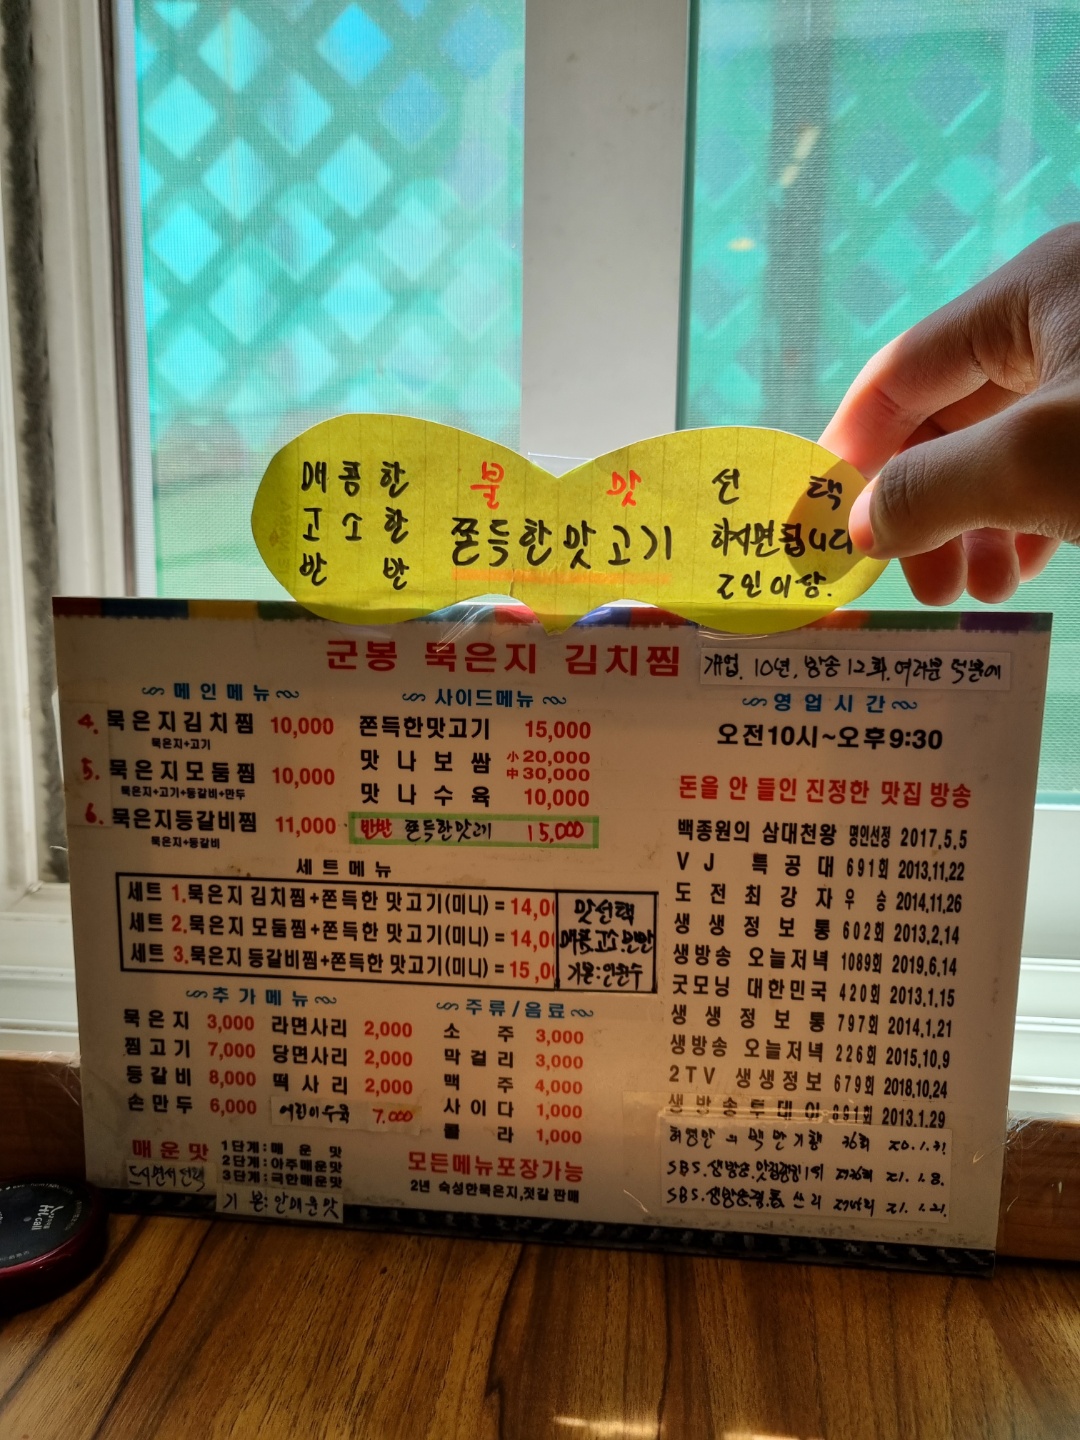 매콤한 불 맛 선 택
고소한 쫀득한맛고기 하시면됩니다
반 반 2인 이상.
군봉 묵은지 김치찜
개업. 10년, 방송 12회. 여러분 덕분에
메인메뉴
4. 묵은지김치찜 10,000
묵은지+고기
5. 묵은지모둠찜 10,000
묵은지+고기+등갈비+만두
6. 묵은지등갈비찜 11,000
묵은지+등갈비
사이드메뉴
쫀득한맛고기 15,000
맛나보쌈 小20,000
中30,000
맛나수육 10,000
반반 쫀득한맛고기 15,000
세트메뉴
세트 1.묵은지 김치찜+쫀득한 맛고기(미니) = 14,0
세트 2.묵은지 모둠찜+쫀득한 맛고기(미니) = 14,0
세트 3.묵은지 등갈비찜+쫀득한 맛고기(미니) = 15,0
맛선택
매콤.고소.반반
추가메뉴
묵은지 3,000
찜고기 7,000
등갈비 8,000
손만두 6,000
라면사리 2,000
당면사리 2,000
떡사리 2,000
어린이수육 7.000
주류/음료
소 주 3,000
막걸리 3,000
맥 주 4,000
사이다 1,000
콜 라 1,000
매운맛
1단계:매 운 맛
2단계:아주매운맛
3단계:극한매운맛
기 본:안매운맛
모든메뉴포장가능
2년 숙성한묵은지,젓갈 판매
영업시간
오전10시~오후9:30
돈을 안 들인 진정한 맛집 방송
백종원의 삼대천왕 명인선정 2017.5.5
VJ 특공대 691회 2013,11,22
도전최강자 우 승 2014.11.26
생생정보통 602회 2013.2.14
생방송 오늘저녁 1089회 2019.6.14
굿모닝 대한민국 420회 2013.1.15
생생정보통 797회 2014.1.21
생방송 오늘저녁 226회 2015.10.9
2TV 생생정보 679회 2018.10.24
생방송투데이 891회 2013.1.29
허영만의 백반기행 36회 20.1.31
SBS.생방송. 21.1.8.
SBS.생방송 21.1.21.